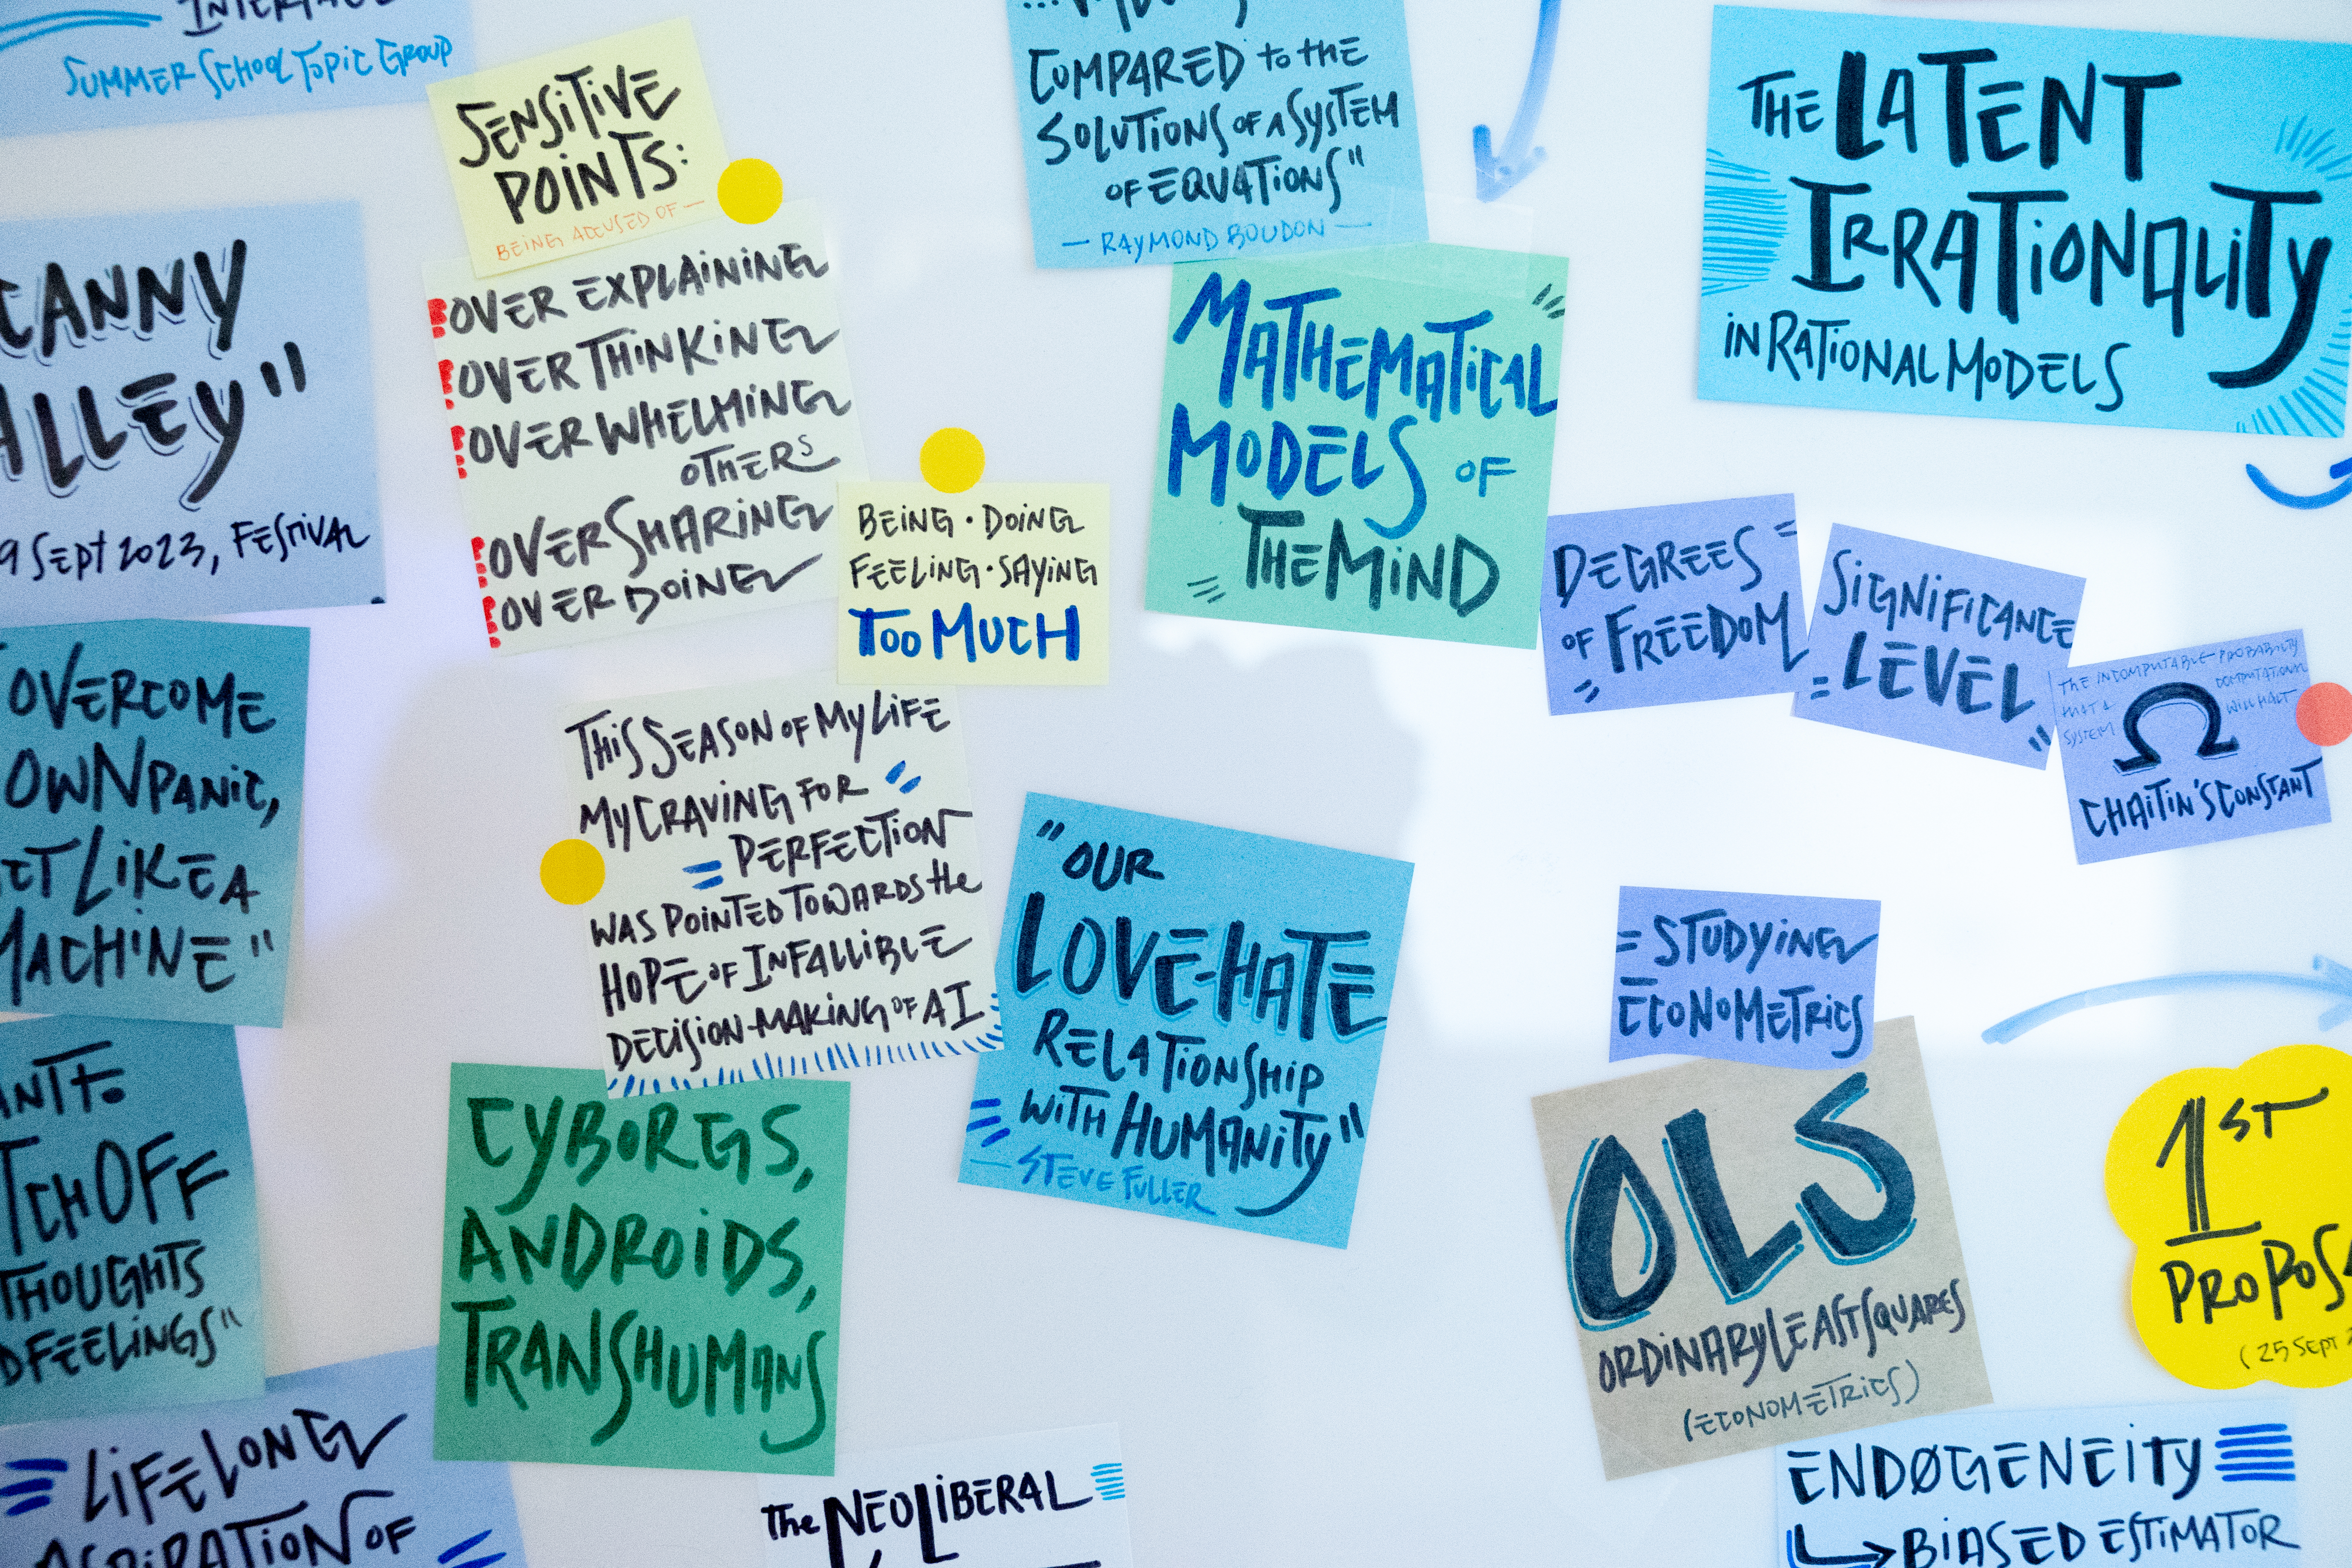 SUMMER SCHOOL TOPIC GROUP
SENSITIVE
POINTS:
BEING ACCUSED OF —
OVER EXPLAINING
OVER THINKING
OVER WHELMING
OTHERS
OVER SHARING
OVER DOING
BEING · DOING
FEELING · SAYING
TOO MUCH
9 SEPT 2023, FESTIVAL
OVERCOME
OWN PANIC,
LIKE A
MACHINE"
THOUGHTS
FEELINGS"
= LIFELONG
OF
THIS SEASON OF MY LIFE
MY CRAVING FOR
= PERFECTION
WAS POINTED TOWARDS the
HOPE OF INFALLIBLE
DECISION-MAKING OF AI
CYBORGS,
ANDROIDS,
TRANSHUMANS
The NEOLIBERAL
COMPARED to the
SOLUTIONS OF A SYSTEM
OF EQUATIONS"
— RAYMOND BOUDON —
MATHEMATICAL
MODELS OF
THE MIND
"OUR
LOVE-HATE
RELATIONSHIP
WITH HUMANITY"
— STEVE FULLER
THE LATENT
IRRATIONALITY
IN RATIONAL MODELS
DEGREES
OF FREEDOM
SIGNIFICANCE
LEVEL
THE INCOMPUTABLE PROBABILITY
THAT A COMPUTATIONAL
SYSTEM WILL HALT
Ω
CHAITIN'S CONSTANT
= STUDYING
ECONOMETRICS
OLS
ORDINARY LEAST SQUARES
(ECONOMETRICS)
1ST
(25 SEPT
ENDØGENEITY
BIASED ESTIMATOR